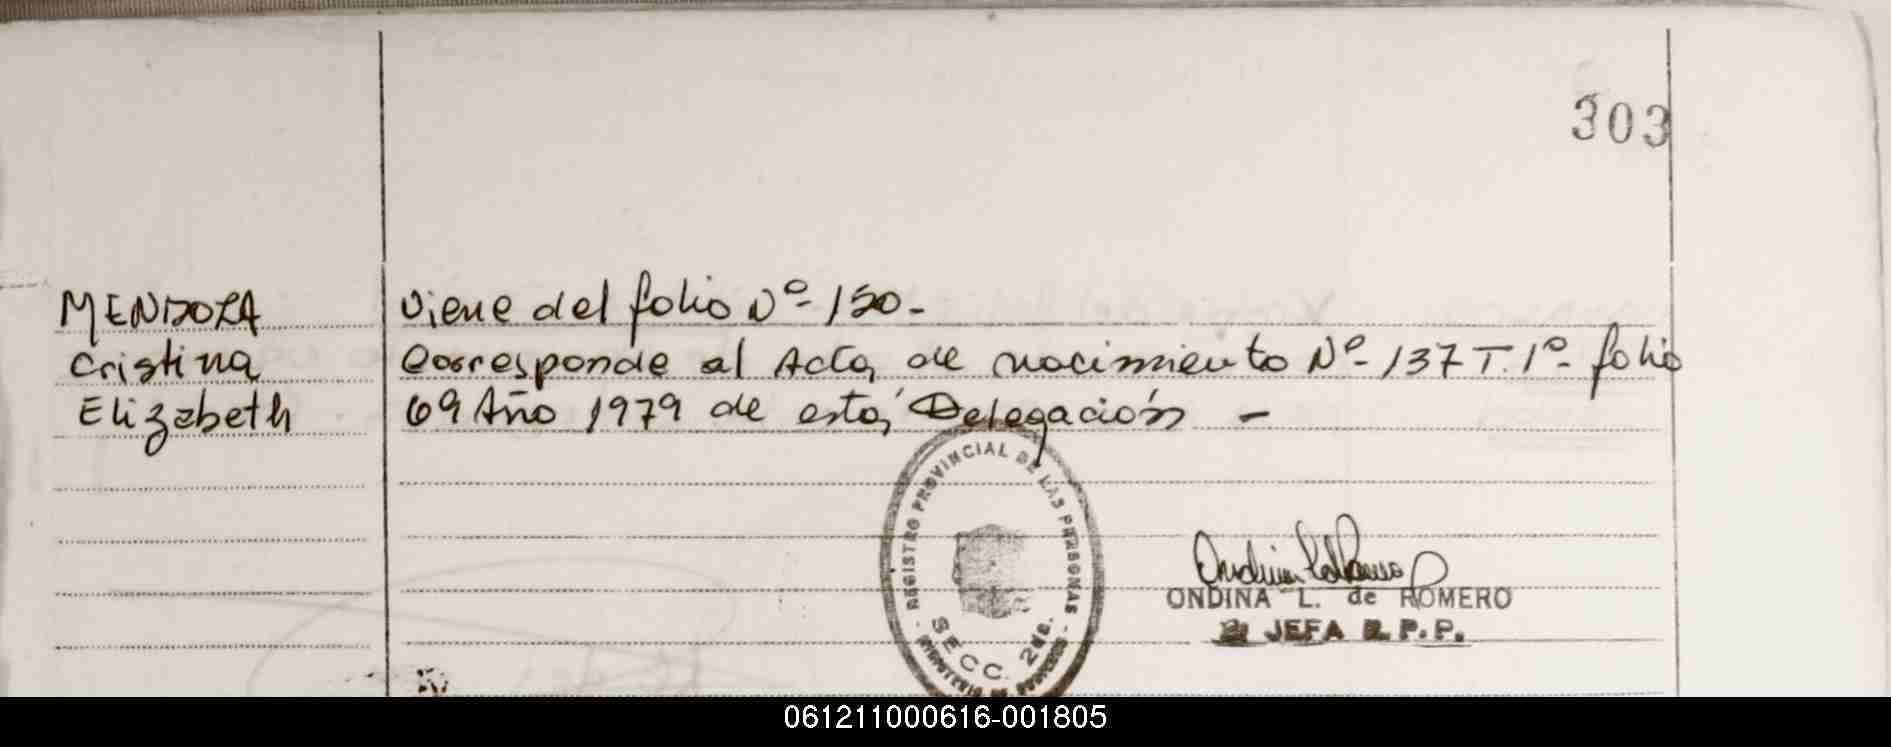 303
MENDOZA Viene del folio Nº- 150-
Cristina Corresponde al Acta de nacimiento Nº- 137 T. 1º- folio
Elizabeth 69 Año 1979 de esta Delegación -
REGISTRO PROVINCIAL DE LAS PERSONAS
SECC. 2da.
ONDINA L. de ROMERO
JEFA R.P.P.
061211000616-001805